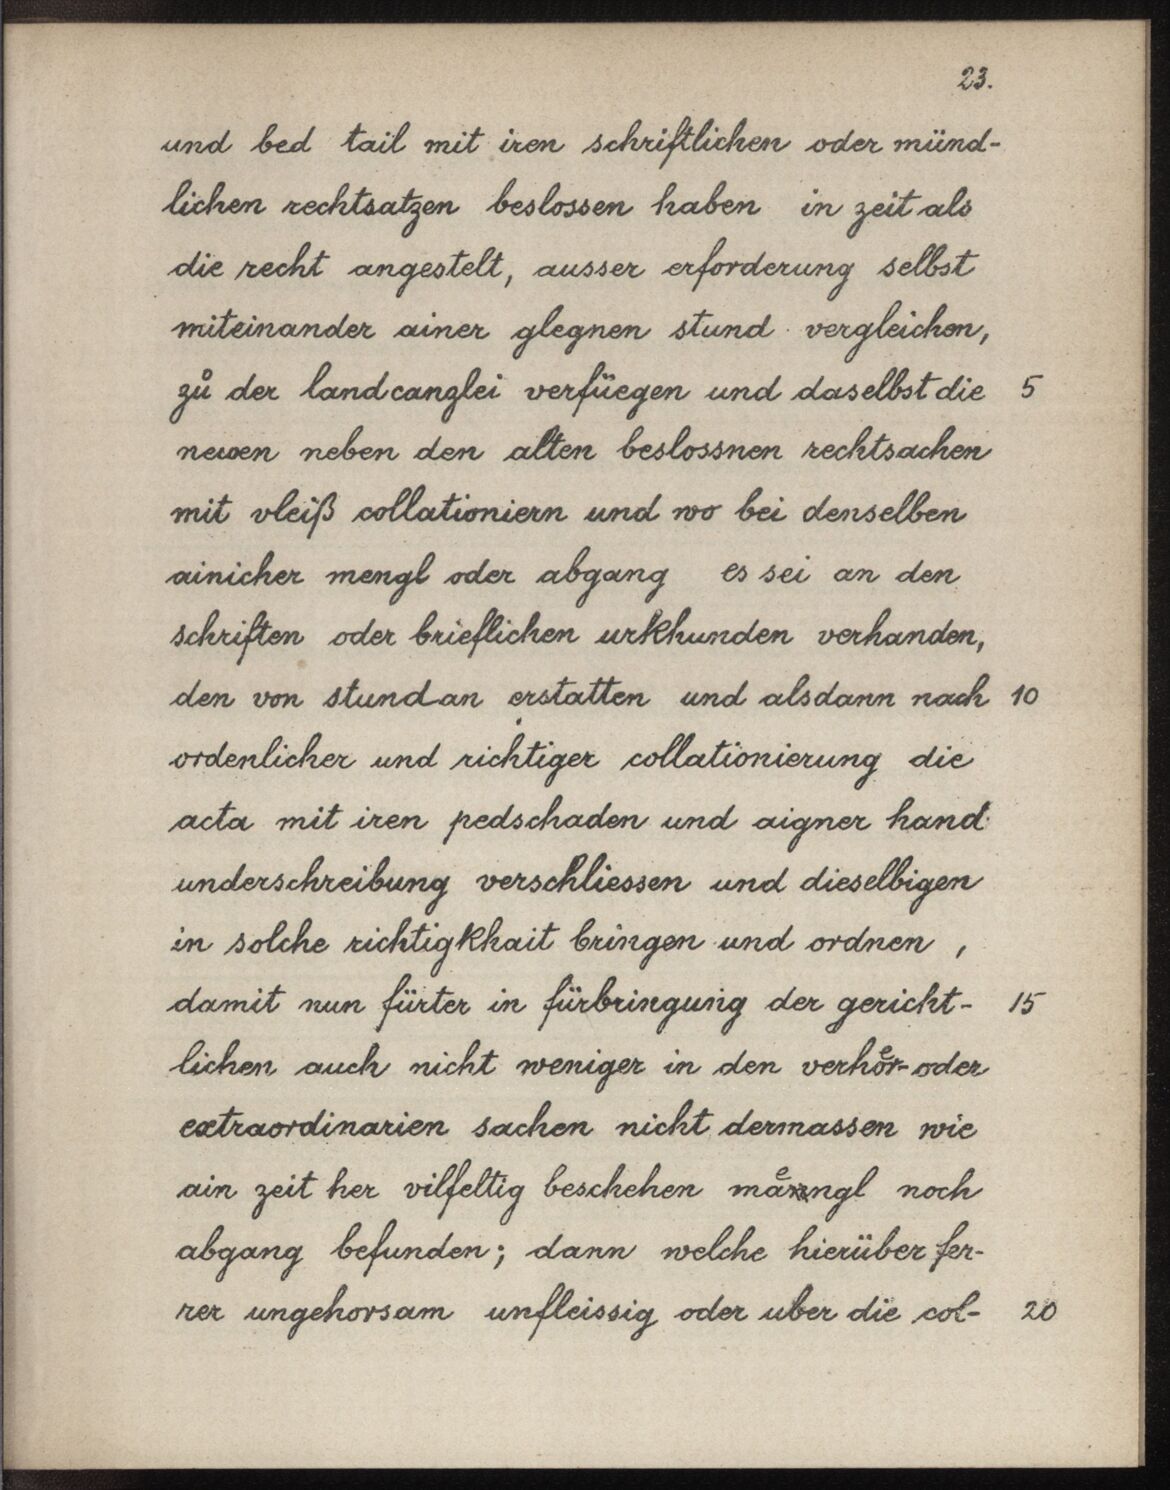 23.
und bed tail mit iren schriftlichen oder münd-
lichen rechtsatzen beslossen haben in zeit als
die recht angestelt, ausser erforderung selbst
miteinander ainer glegnen stund vergleichen,
zů der landcanzlei verfüegen und daselbst die 5
newen neben den alten beslossnen rechtsachen
mit vleiß collationiern und wo bei denselben
ainicher mengl oder abgang es sei an den
schriften oder brieflichen urkhunden verhanden,
den von stund an erstatten und alsdann nach 10
ordenlicher und richtiger collationierung die
acta mit iren pedschaden und aigner hand
underschreibung verschliessen und dieselbigen
in solche richtigkhait bringen und ordnen ,
damit nun fürter in fürbringung der gericht- 15
lichen auch nicht weniger in den verhoͤr- oder
extraordinarien sachen nicht dermassen wie
ain zeit her vilfeltig beschehen maͤngl noch
abgang befunden; dann welche hierüber fer-
rer ungehorsam unfleissig oder uber die col- 20